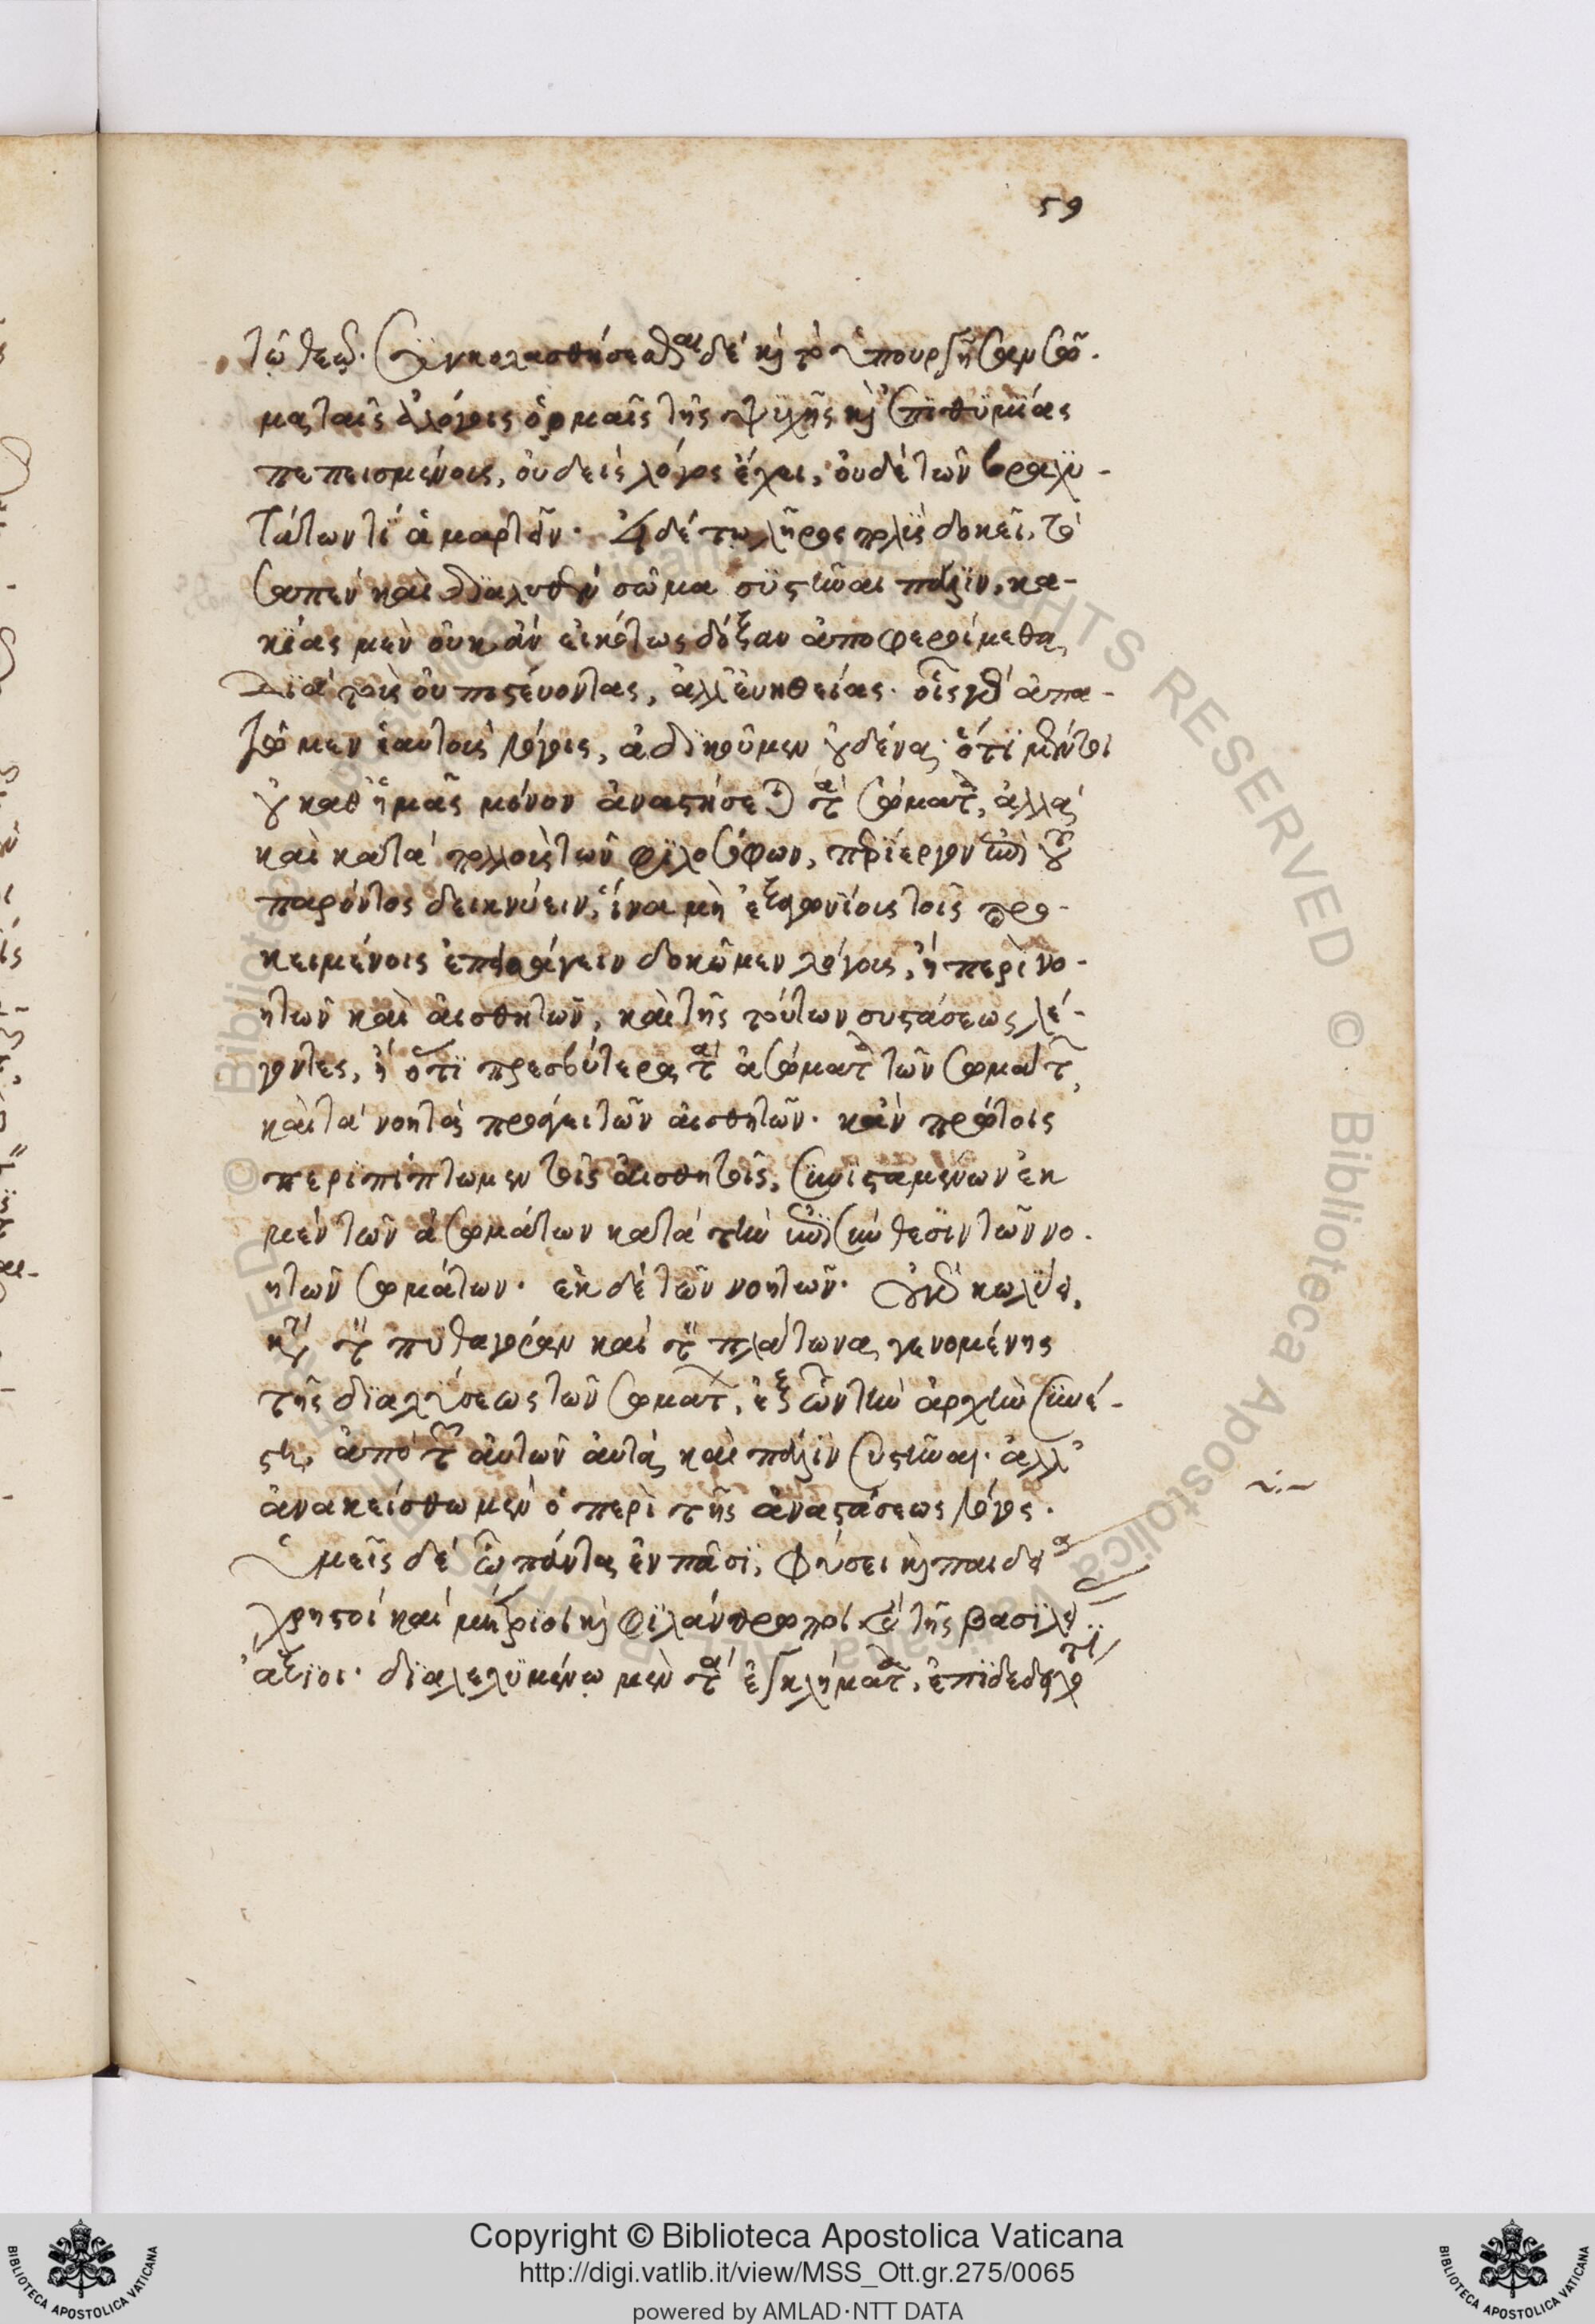 59
τῷ θεῷ. συγκολασθήσεσθαι δὲ καὶ τὸ ὑπουργῆσαν σῶ-
μα ταῖς ἀλόγοις ὁρμαῖς τῆς ψυχῆς καὶ ἐπιθυμίαις
πεπεισμένοις, οὐδεὶς λόγος ἔχει, οὐδὲ τῶν βραχυ-
τάτων τί ἁμαρτεῖν. εἰ δέ τῳ λῆρος πολὺς δοκεῖ, τὸ
σαπὲν καὶ διαλυθὲν σῶμα συστῆναι πάλιν, κα-
κίας μὲν οὐκ ἂν εἰκότως δόξαν ἀποφεροίμεθα
διὰ τοὺς οὐ πιστεύοντας, ἀλλ' εὐηθείας. οἷς γὰρ ἀπα-
τῶμεν ἑαυτοὺς λόγοις, ἀδικοῦμεν οὐδένα. ὅτι μέντοι
οὐ καθ' ἡμᾶς μόνον ἀναστήσεται τὰ σώματα, ἀλλὰ
καὶ κατὰ πολλοὺς τῶν φιλοσόφων, περίεργον ἐπὶ τοῦ
παρόντος δεικνύειν, ἵνα μὴ ἐξαγωνίοις τοῖς προ-
κειμένοις ἐπεισάγειν δοκῶμεν λόγοις, ἢ περὶ νο-
ητῶν καὶ αἰσθητῶν, καὶ τῆς τούτων συστάσεως λέ-
γοντες, ἢ ὅτι πρεσβύτερα τὰ ἀσώματα τῶν σωμάτων,
καὶ τὰ νοητὰ προάγει τῶν αἰσθητῶν. κἂν πρώτοις
περιπίπτωμεν τοῖς αἰσθητοῖς, συνισταμένων ἐκ
μὲν τῶν ἀσωμάτων κατὰ τὴν ἐπισύνθεσιν τῶν νο-
ητῶν σωμάτων. ἐκ δὲ τῶν νοητῶν. οὐ γὰρ κωλύει,
κατὰ τὸν πυθαγόραν καὶ τὸν πλάτωνα, γενομένης
τῆς διαλύσεως τῶν σωμάτων, ἐξ ὧν τὴν ἀρχὴν συνέ-
στη, ἀπὸ τῶν αὐτῶν αὐτὰ καὶ πάλιν συστῆναι. ἀλλ'
ἀνακείσθω μὲν ὁ περὶ τῆς ἀναστάσεως λόγος.
ὑμεῖς δὲ ὦ πάντα ἐν πᾶσι, φύσει καὶ παιδείᾳ
χρηστοὶ καὶ μέτριοι καὶ φιλάνθρωποι καὶ τῆς βασιλείας
ἄξιοι. διαλελυμένῳ μὲν τὰ ἐγκλήματα, ἐπιδεδειχότι
Copyright © Biblioteca Apostolica Vaticana
http://digi.vatlib.it/view/MSS_Ott.gr.275/0065
powered by AMLAD·NTT DATA